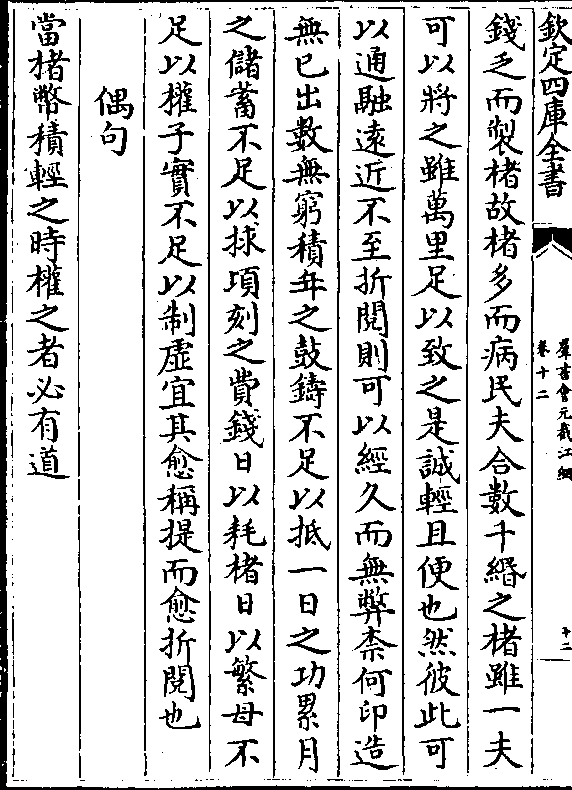 欽定四庫全書
羣書會元截江網
卷十二
十二
錢乏而製楮故楮多而病民夫合數千緡之楮雖一夫
可以將之雖萬里足以致之是誠輕且便也然彼此可
以通融遠近不至折閱則可以經久而無弊柰何印造
無已出數無窮積年之鼓鑄不足以抵一日之功累月
之儲蓄不足以捄項刻之費錢日以耗楮日以繁母不
足以權子實不足以制虛宜其愈稱提而愈折閱也
偶句
當楮幣積輕之時權之者必有道